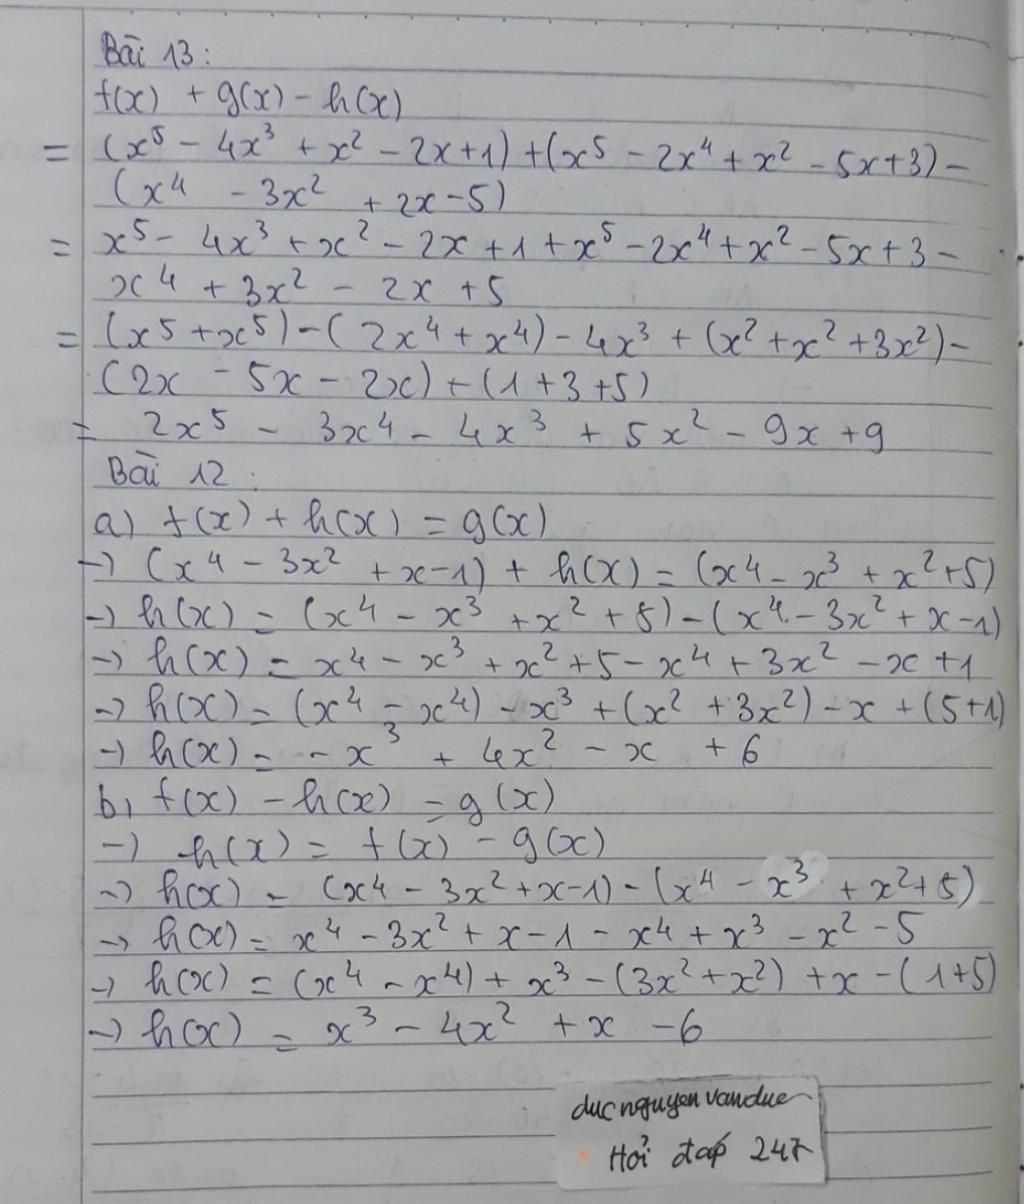 Bài 13:
f(x) + g(x) - h(x)
= (x⁵ - 4x³ + x² - 2x+1) + (x⁵ - 2x⁴ + x² - 5x+3) -
(x⁴ - 3x² + 2x-5)
= x⁵ - 4x³ + x² - 2x + 1 + x⁵ - 2x⁴ + x² - 5x + 3 -
x⁴ + 3x² - 2x + 5
= (x⁵ + x⁵) - (2x⁴ + x⁴) - 4x³ + (x² + x² + 3x²) -
(2x - 5x - 2x) + (1 + 3 + 5)
= 2x⁵ - 3x⁴ - 4x³ + 5x² - 9x + 9
Bài 12:
a) f(x) + h(x) = g(x)
→ (x⁴ - 3x² + x-1) + h(x) = (x⁴ - x³ + x² + 5)
→ h(x) = (x⁴ - x³ + x² + 5) - (x⁴ - 3x² + x - 1)
→ h(x) = x⁴ - x³ + x² + 5 - x⁴ + 3x² - x + 1
→ h(x) = (x⁴ - x⁴) - x³ + (x² + 3x²) - x + (5+1)
→ h(x) = - x³ + 4x² - x + 6
b) f(x) - h(x) = g(x)
→ h(x) = f(x) - g(x)
→ h(x) = (x⁴ - 3x² + x-1) - (x⁴ - x³ + x² + 5)
→ h(x) = x⁴ - 3x² + x - 1 - x⁴ + x³ - x² - 5
→ h(x) = (x⁴ - x⁴) + x³ - (3x² + x²) + x - (1+5)
→ h(x) = x³ - 4x² + x - 6
ducnguyenvanduc
Hỏi đáp 247